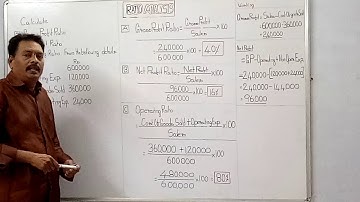 Calculate
Profit Ratio
Ratio
Ratio from the following details
Rs
600000
Exp 120000
Sold 360000
Exp 24000
RATIO ANALYSIS
A Gross Profit Ratio = Gross Profit / Sales x100
240000 / 600000 x100 = 40%
B Net Profit Ratio = Net Profit / Sales x100
96000 / 600000 x100 = 16%
C Operating Ratio
= Cost Of Goods Sold + Operating Exp / Sales x100
= 360000 + 120000 / 600000 x100
= 480000 / 600000 x100 = 80%
Working
Gross Profit = Sales - Cost of Goods Sold
600000-360000
= 240000
Net Profit
= GP - Operating + Non Oper Exp
= 240000-(120000+24000)
= 240000-144000
= 96000